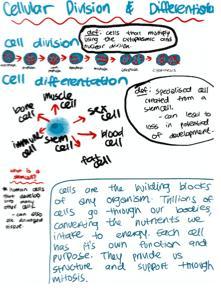 Cellular Division & Differentiatio
def: cells that multiply
using the cytoplasmic and
nuclear division
cell division
cell differentiation
def: specialised cell
created from a
stemcell.
- can lead to
loss in potential
of development.
muscle
cell
bone
cell
sex
cell
immune
cell
stem
cell
blood
cell
fat
cell
what is a
stemcell?
cells that
develop
into many
other cells
- can also
fix damaged
tissue
cells are the building blocks
of any organism. Trillions of
cells go through our bodies
converting the nutrients we
intake to energy. Each cell
has it's own function and
purpose. They provide us
structure and support through
mitosis.